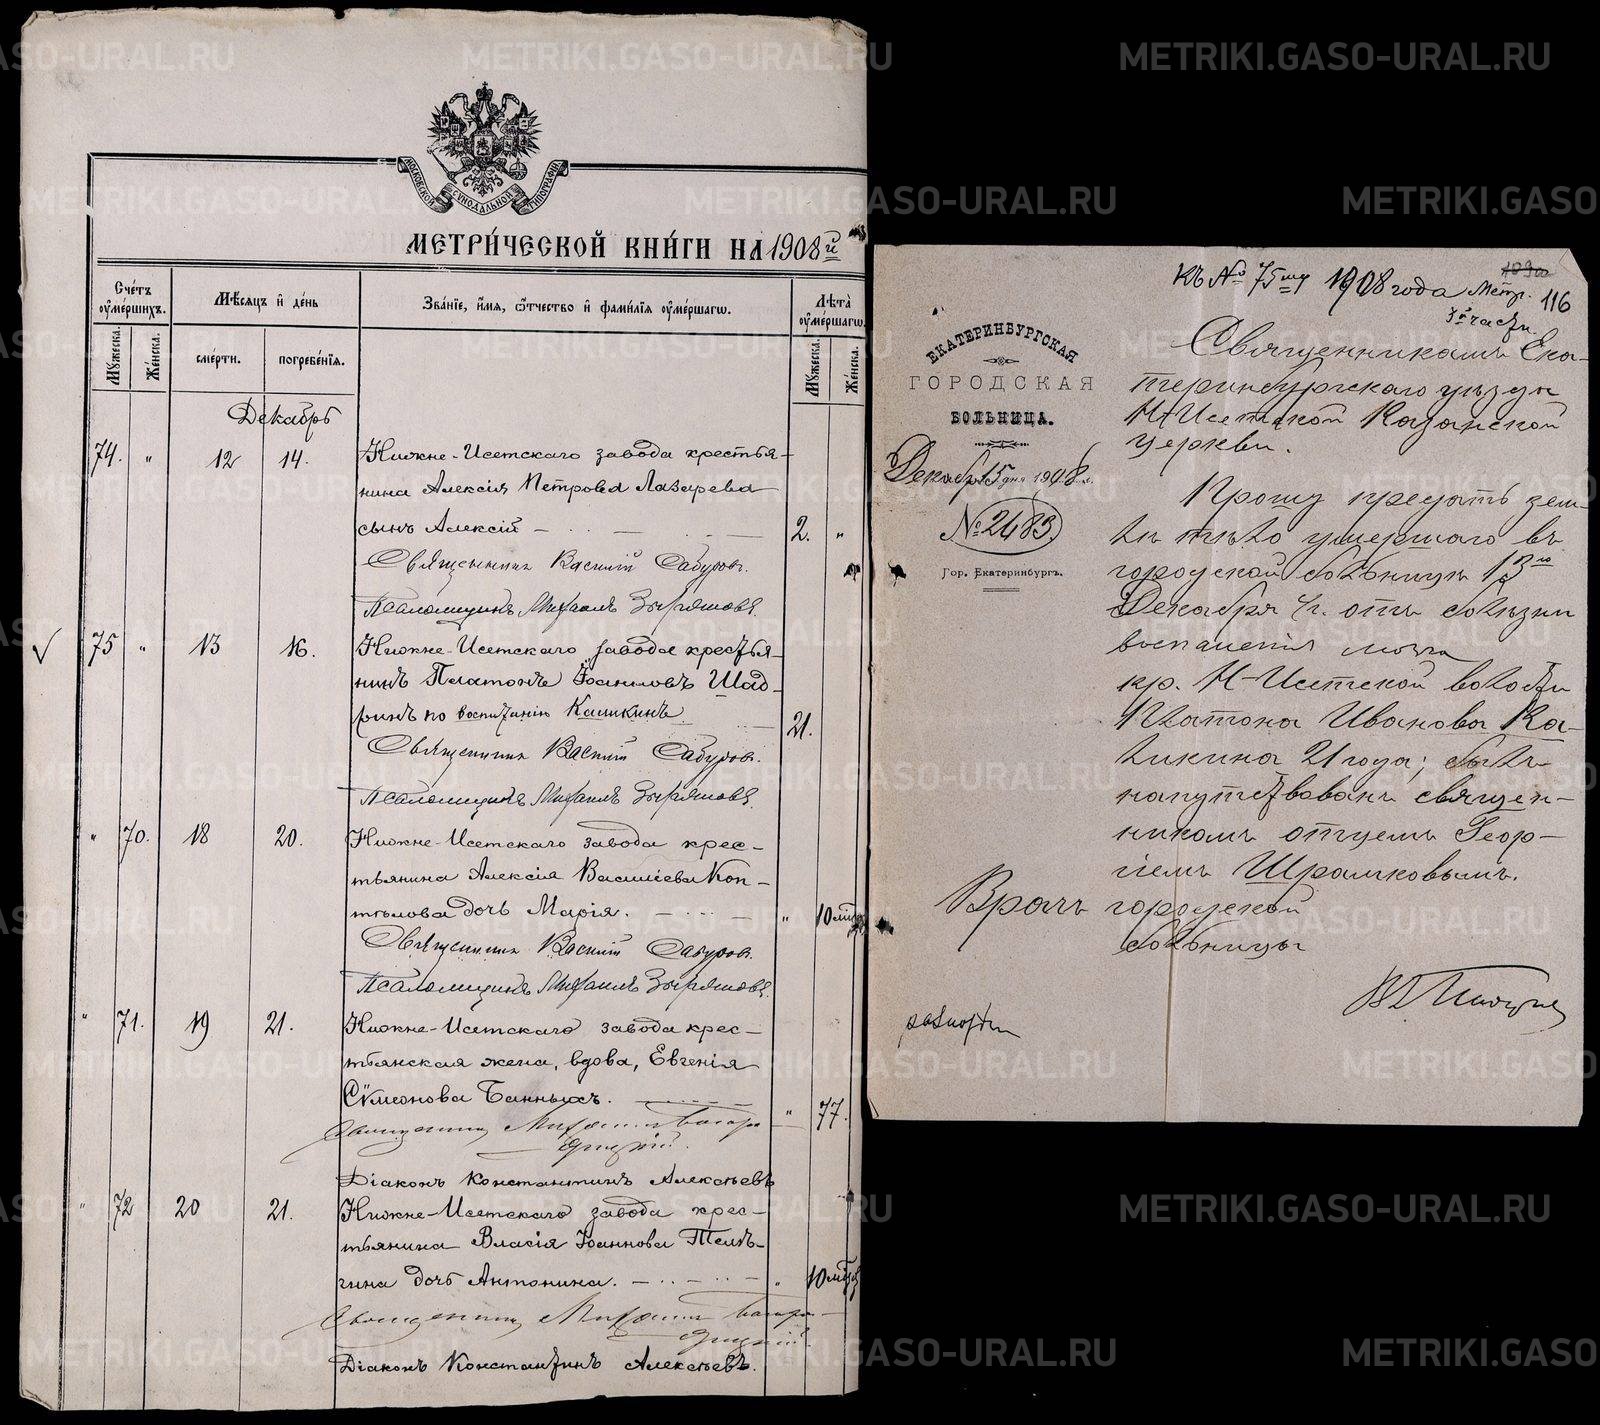 МОСКОВСКОЙ СѴНОДАЛЬНОЙ ТИПОГРАФИИ
МЕТРИ́ЧЕСКОЙ КНИ́ГИ НА 1908й
Сче́тъ ᲂу҆ме́ршихъ.
Мѣ́сяцъ и҆ де́нь
Зва́нїе, и҆́мя, ѻ҆́тчество и҆ фами́лїя ᲂу҆ме́ршагѡ.
Лѣта̀ ᲂу҆ме́ршагѡ.
Мꙋ́жеска.
Же́нска.
сме́рти.
погребе́нїѧ.
Мꙋ́жеска.
Же́нска.
Декабрь
74. " 12 14. Нижне-Исетскаго завода крестья-
нина Алексія Петрова Лазарева
сынъ Алексій 2. "
Священникъ Василій Сабуровъ.
Псаломщикъ Михаилъ Зыряновъ.
75 " 13 16. Нижне-Исетскаго завода крестья-
нинъ Платонъ Іоанновъ Шад-
ринъ по воспитанію Каликинъ 21.
Священникъ Василій Сабуровъ.
Псаломщикъ Михаилъ Зыряновъ.
" 70. 18 20. Нижне-Исетскаго завода крес-
тьянина Алексія Василіева Коп-
тѣлова дочь Марія. " 10 мѣс
Священникъ Василій Сабуровъ.
Псаломщикъ Михаилъ Зыряновъ.
" 71. 19 21. Нижне-Исетскаго завода крес-
тьянская жена, вдова, Евгенія
Сѵмеонова Банныхъ. " 77.
Священникъ Михаилъ
Діаконъ Константинъ Алексѣевъ
" 72 20 21. Нижне-Исетскаго завода крес-
тьянина Власія Іоаннова Телѣ-
гина дочь Антонина. " 10 мѣс
Священникъ Михаилъ
Діаконъ Константинъ Алексѣевъ.
къ № 75му 1908 года Метр. 116
3й части.
ЕКАТЕРИНБУРГСКАЯ
ГОРОДСКАЯ
БОЛЬНИЦА.
Декабря 15 дня 1908 г.
№ 2483.
Гор. Екатеринбургъ.
Священникамъ Ека-
теринбургскаго уѣзда
Н-Исетской Казанской
церкви.
Прошу предать зем-
лѣ тѣло умершаго въ
городской больницѣ 13го
Декабря с/г. отъ болѣзни
воспаленія мозга
кр. Н-Исетской волости
Платона Иванова Ка-
ликина 21 года; былъ
напутствованъ священ-
никомъ отцемъ Геор-
гіемъ Шрамковымъ.
Врачъ городской
больницы
METRIKI.GASO-URAL.RU